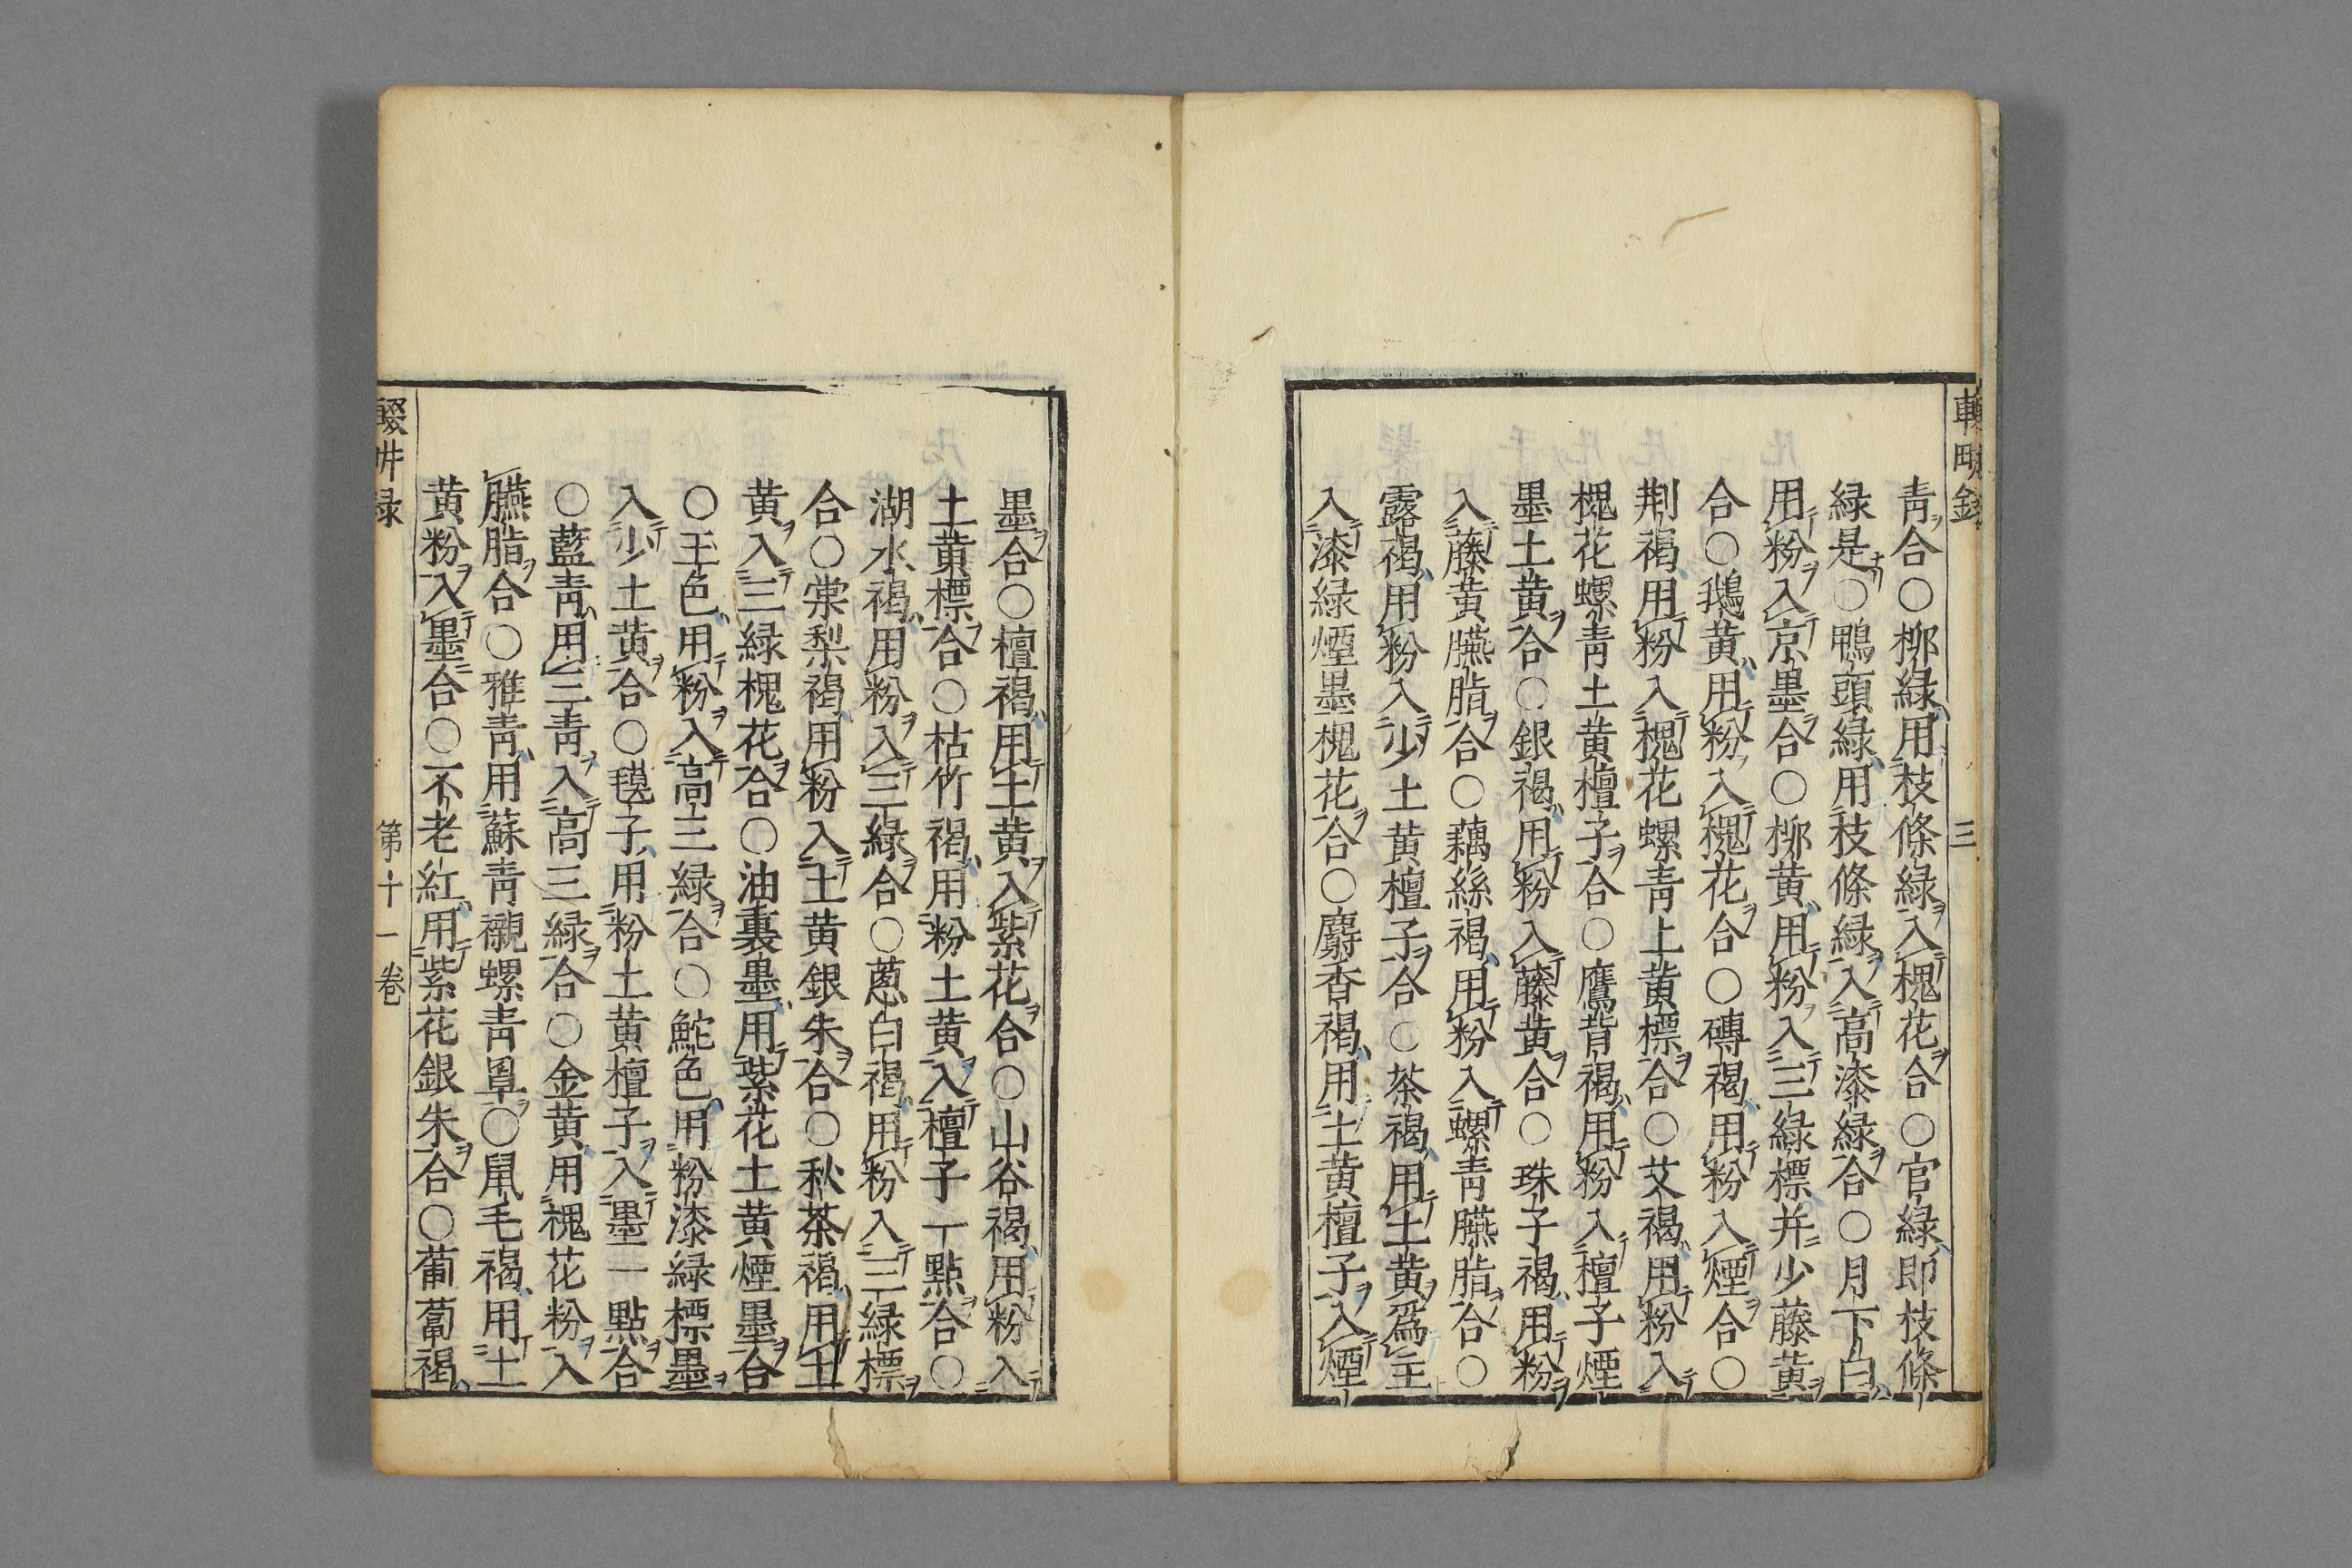 青合○柳綠用枝條綠入槐花合○官綠即枝條
綠是○鴨頭綠用枝條綠入高漆綠合○月下白
用粉入京墨合○柳黄用粉入三綠標并少藤黄
合○鵝黄用粉入槐花合○磚褐用粉入煙合○
荆褐用粉入槐花螺青上黄標合○艾褐用粉入
槐花螺青土黄檀子合○鷹背褐用粉入檀子煙
墨土黄合○銀褐用粉入藤黄合○珠子褐用粉
入藤黄臙脂合○藕絲褐用粉入螺青臙脂合○
露褐用粉入少土黄檀子合○茶褐用土黄爲主
入漆綠煙墨槐花合○麝香褐用土黄檀子入煙
三
墨合○檀褐用土黄入紫花合○山谷褐用粉入
土黄標合○枯竹褐用粉土黄入檀子一點合○
湖水褐用粉入三綠合○蔥白褐用粉入三綠標
合○棠梨褐用粉入土黄銀朱合○秋茶褐用土
黄入三綠槐花合○油裏墨用紫花土黄煙墨合
○玉色用粉入高三綠合○鮀色用粉漆綠標墨
入少土黄合○毯子用粉土黄檀子入墨一點合
○藍青用三青入高三綠合○金黄用槐花粉入
臙脂合○雅青用蘇青襯螺青罩○鼠毛褐用土
黄粉入墨合○不老紅用紫花銀朱合○葡萄褐
輟畊録 第十一卷